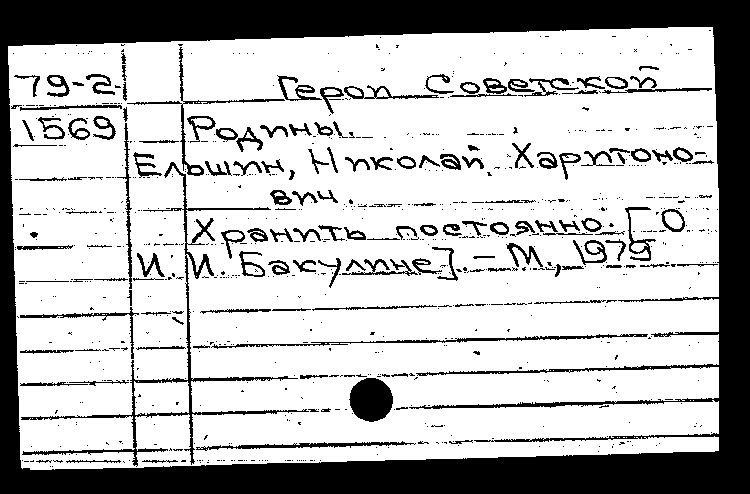 79-2 Герои Советской
1569 Родины.
Ельшин, Николай Харитоно-
вич.
Хранить постоянно. [О
И. И. Бакулине]. - М., 1979